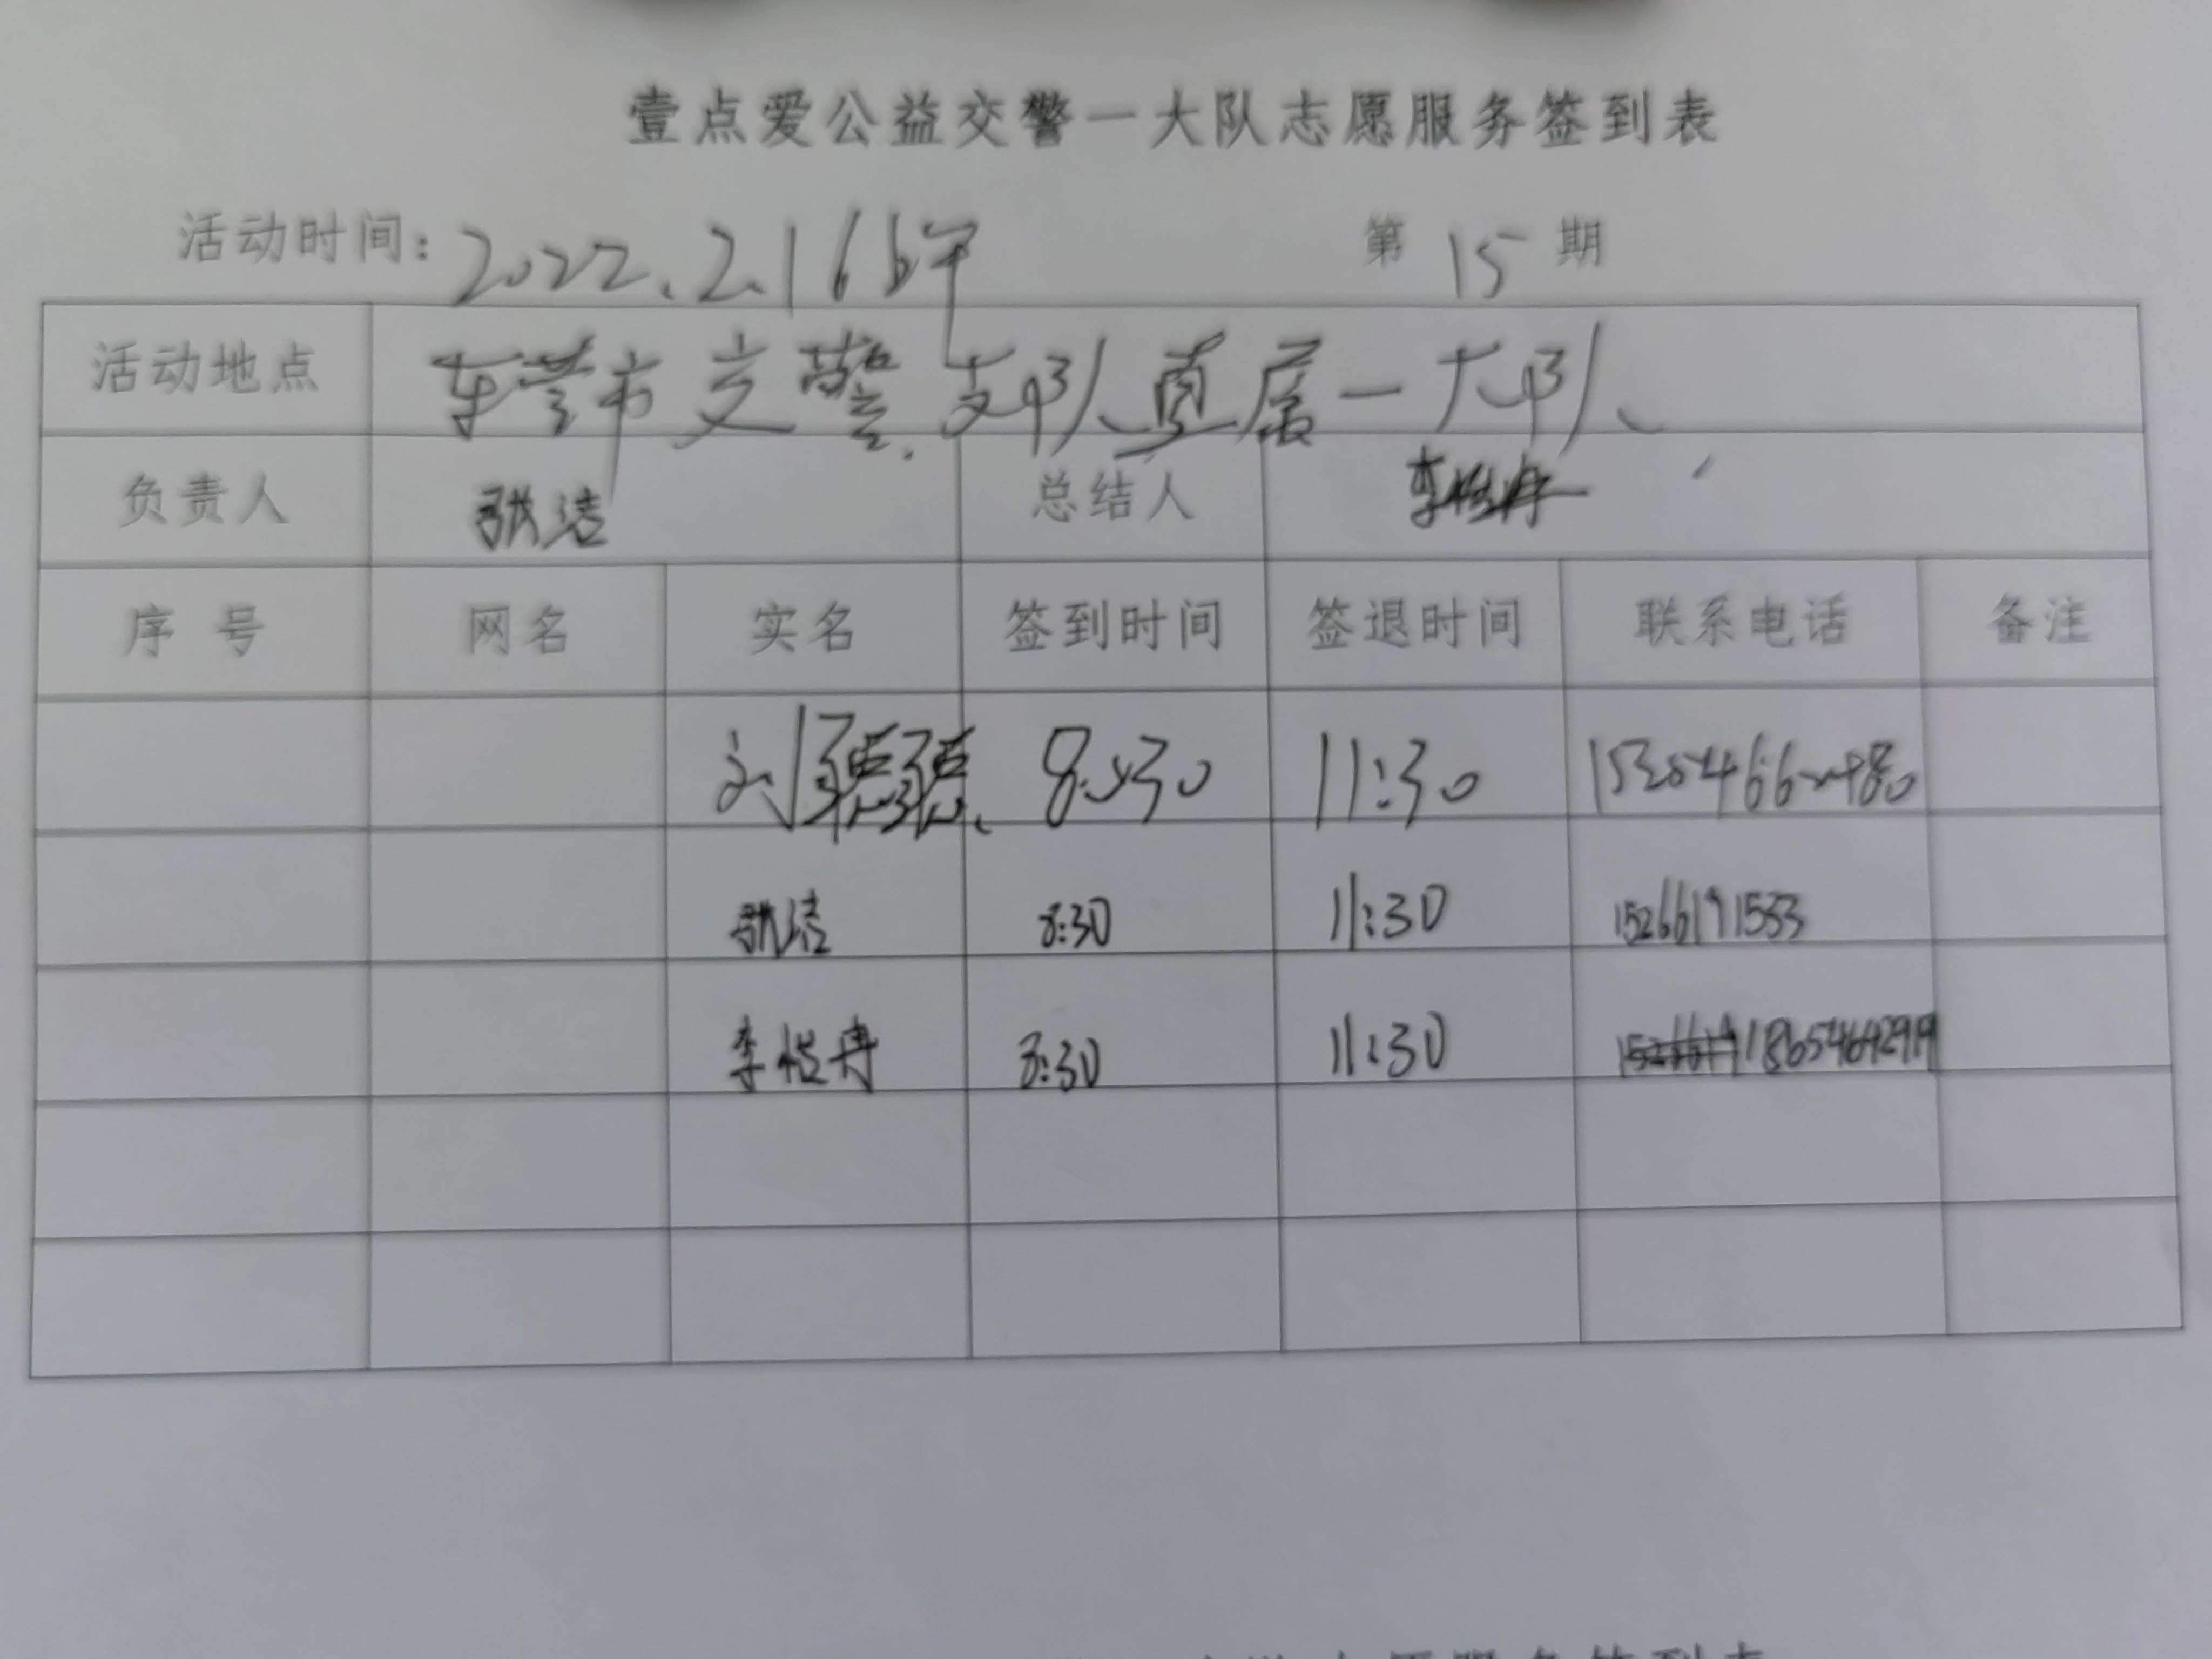 壹点爱公益交警一大队志愿服务签到表
活动时间：2022.2.16 上午 第 15 期
活动地点 东营市交警支队直属一大队
负责人 张洁 总结人 李怡冉
序 号 网名 实名 签到时间 签退时间 联系电话 备注
刘聪聪 8:30 11:30
张洁 8:30 11:30 15266191533
李怡冉 8:30 11:30 18654642919